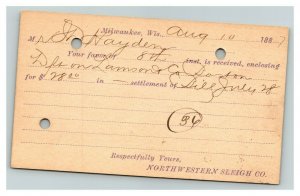 Milwaukee, Wis., Aug 10 1887
M. Hayden
Your favor of 8th inst. is received, enclosing
Dft on Lamson & Co Boston
for $ 28.00 in — settlement of bill July 28
(96)
Respectfully Yours,
NORTHWESTERN SLEIGH CO.